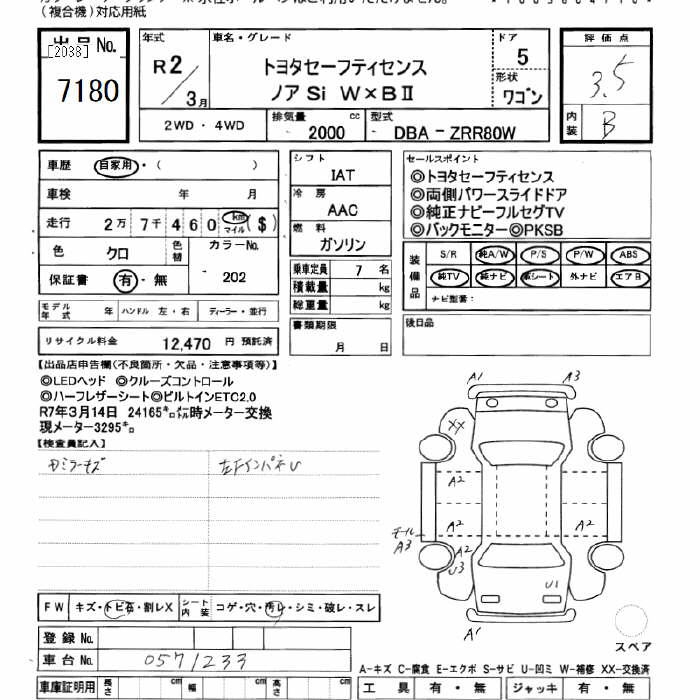 (複合機)対応用紙
出品No.
[2038]
7180
年式
R2/3月
車名・グレード
トヨタセーフティセンス
ノアSi W×BⅡ
ドア
5
形状
ワゴン
評価点
3.5
内装
B
2WD・4WD
排気量 2000 cc
型式 DBA－ZRR80W
車歴 自家用・( )
車検 年 月
走行 2万 7千 4 6 0 km マイル ($)
色 クロ 色替 カラーNo. 202
保証書 有・無
シフト
IAT
冷房
AAC
燃料
ガソリン
乗車定員 7 名
積載量 kg
総重量 kg
書類期限
月 日
セールスポイント
◎トヨタセーフティセンス
◎両側パワースライドドア
◎純正ナビーフルセグTV
◎バックモニター◎PKSB
装備品
S/R 純A/W P/S P/W ABS
純TV 純ナビ 革シート 外ナビ エアB
ナビ型番:
後日品
モデル年式 年 ハンドル 左・右 ディーラー・並行
リサイクル料金 12,470 円 預託済
【出品店申告欄(不良箇所・欠品・注意事項等)】
◎LEDヘッド ◎クルーズコントロール
◎ハーフレザーシート◎ビルトインETC2.0
R7年3月14日 24165㌔㍍時メーター交換
現メーター3295㌔
【検査員記入】
左FインパネU
A1 A3
XX
A2
A2 A2
モール A3
A2
U3
U1
A1
スペア
FW キズ・トビ石・割レX シート内装 コゲ・穴・汚レ・シミ・破レ・スレ
登録No.
車台No. 0571233
A－キズ C－腐食 E－エクボ S－サビ U－凹ミ W－補修 XX－交換済
車庫証明用 長さ cm 幅 cm 高さ cm
工具 有・無 ジャッキ 有・無